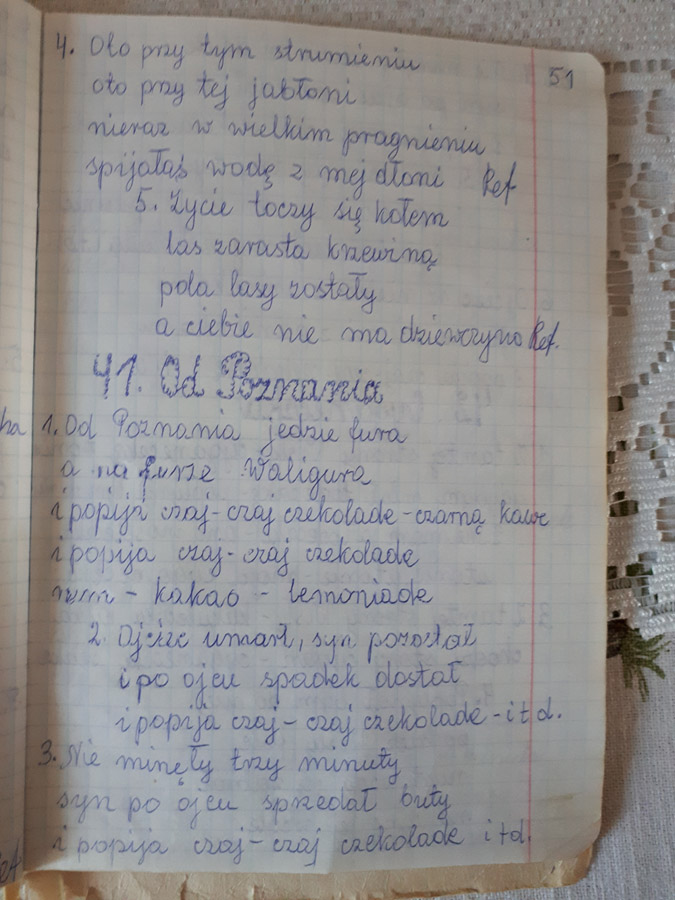 51
4. Oto przy tym strumieniu
oto przy tej jabłoni
nieraz w wielkim pragnieniu
spijałaś wodę z mej dłoni Ref
5. Życie toczy się kołem
las zarasta krzewiną
pola lasy zostały
a ciebie nie ma dziewczyno Ref.
41. Od Poznania
1. Od Poznania jedzie fura
a na furze Waligura
i popija czaj-czaj czekolade-czarną kawe
i popija czaj-czaj czekolade
rum - kakao - lemoniade
2. Ojciec umarł, syn pozostał
i po ojcu spadek dostał
i popija czaj-czaj czekolade - i t d.
3. Nie minęły trzy minuty
syn po ojcu sprzedał buty
i popija czaj-czaj czekolade i td.